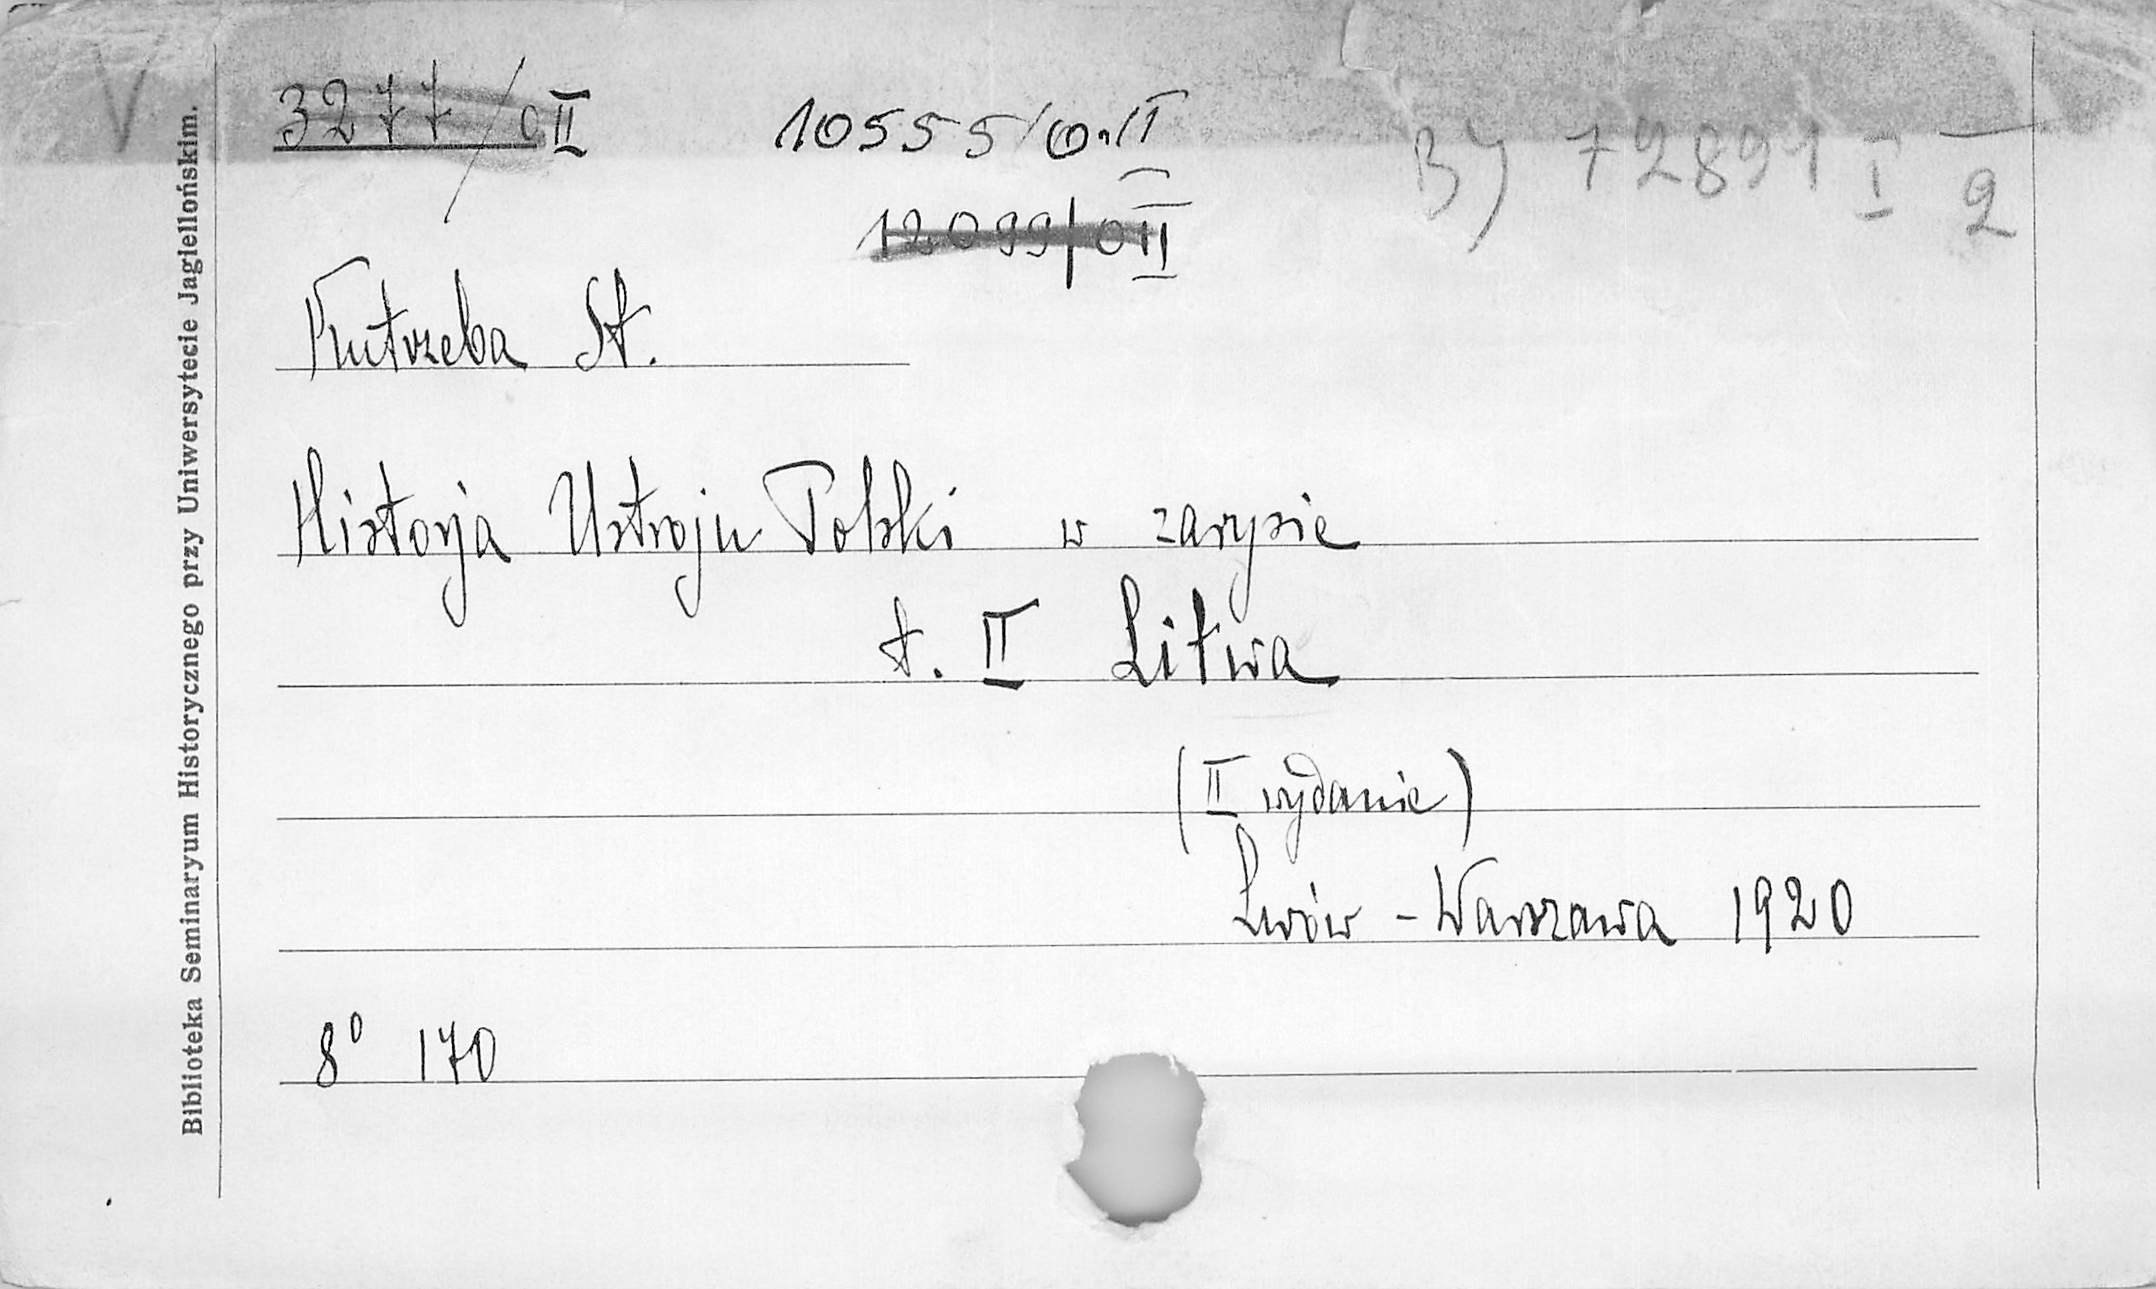 V
3277/c II
10555/O.II
12099/O II
B) 72891 I
2
Kutrzeba St.
Historja Ustroju Polski w zarysie
t. II Litwa
(II wydanie)
Lwów - Warszawa 1920
8⁰ 170
Biblioteka Seminaryum Historycznego przy Uniwersytecie Jagiellońskim.